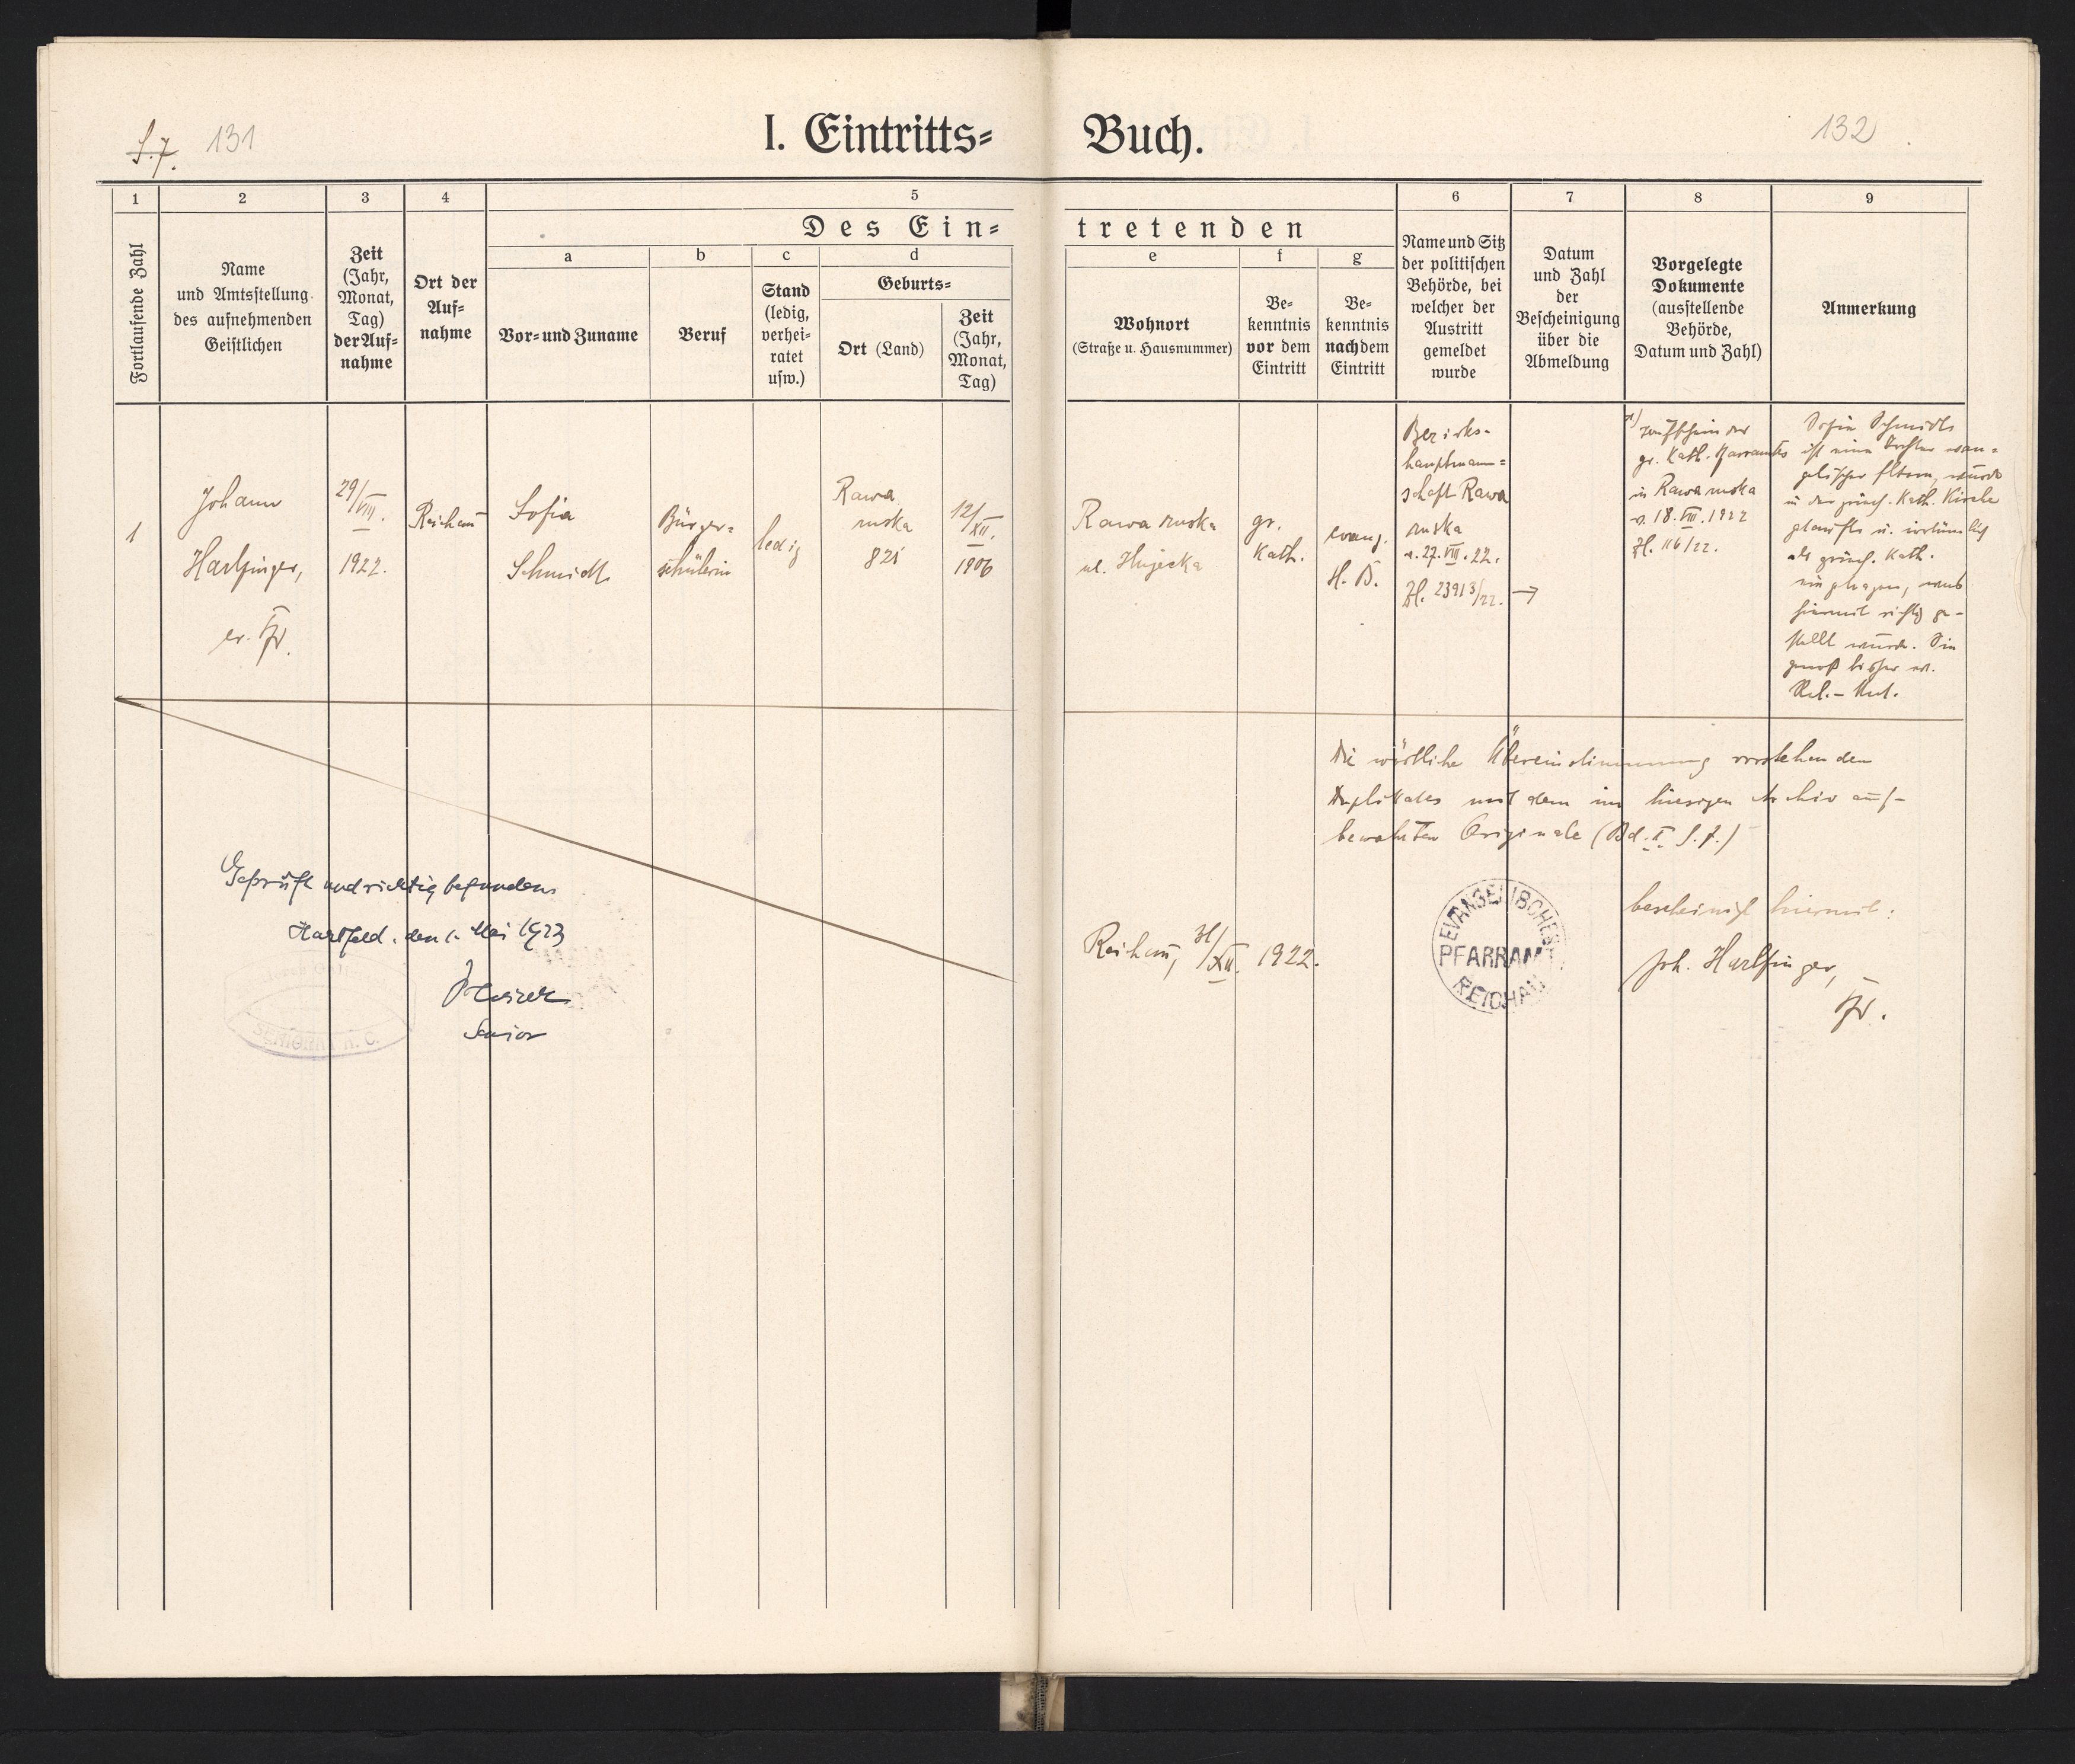 S. 7. 131
I. Eintritts= Buch.
132
1 2 3 4 5 6 7 8 9
Des Ein= tretenden
Fortlaufende Zahl
Name
und Amtsstellung
des aufnehmenden
Geistlichen
Zeit
(Jahr,
Monat,
Tag)
der Auf=
nahme
Ort der
Auf=
nahme
a
Vor= und Zuname
b
Beruf
c
Stand
(ledig,
verhei=
ratet
usw.)
d
Geburts=
Ort (Land)
Zeit
(Jahr,
Monat,
Tag)
e
Wohnort
(Straße u. Hausnummer)
f
Be=
kenntnis
vor dem
Eintritt
g
Be=
kenntnis
nach dem
Eintritt
Name und Sitz
der politischen
Behörde, bei
welcher der
Austritt
gemeldet
wurde
Datum
und Zahl
der
Bescheinigung
über die
Abmeldung
Vorgelegte
Dokumente
(ausstellende
Behörde,
Datum und Zahl)
Anmerkung
1
Johann
Harlfinger,
ev. Pfr.
29/VIII.
1922.
Reichau
Sofia
Schmidt
Bürger=
schülerin
ledig
Rawa
ruska
821
12/XII.
1906
Rawa ruska
ul. Hujecka
gr.
Kath.
evang.
H. B.
Bezirks-
hauptmann=
schaft Rawa
ruska
v. 27. VIII. 22.
Zl. 23913/22. →
Taufschein des
gr. Kath. Pfarramtes
in Rawa ruska
v. 18. VIII. 1922
Zl. 116/22.
Sofia Schmidt
ist eine Tochter evan-
gelischer Eltern, wurde
in der griech. Kath. Kirche
getauft u. irrtümlich
als griech. Kath.
eingetragen, was
hiermit richtig ge-
stellt wurde. Sie
genoß bisher ev.
Rel.- Unt.
Die wörtliche Übereinstimmung vorstehenden
Duplikates mit dem im hiesigen Archiv auf-
bewahrten Originale (Bd. I S. 7.)
bescheinigt hiermit:
Reichau, 31/XII. 1922.
EVANGELISCHES
PFARRAMT
REICHAU
Joh. Harlfinger,
Pfr.
Geprüft und richtig befunden
Hartfeld, den 1. Mai 1923
Senior